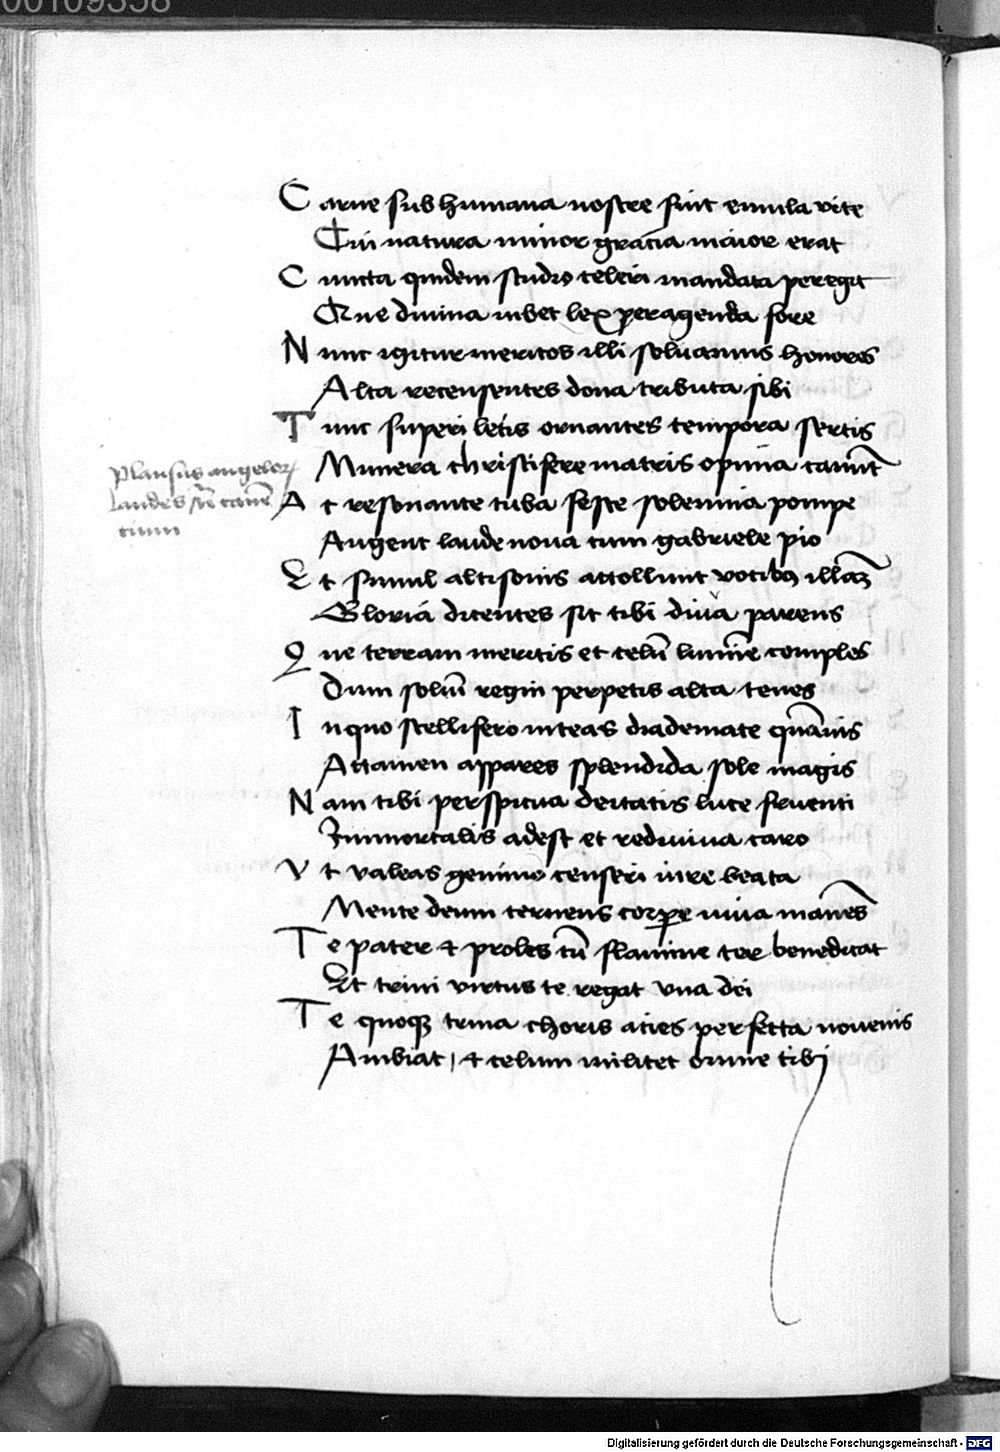 00109358
Carne sub humana nostre fuit emula vite
Cui natura minor gracia maior erat
Cuncta quidem studio celeri mandata peregit
Que divina iubet lex peragenda fore
Nunc igitur meritos illi soluamus honores
Alta recensentes dona tributa sibi
Tunc superi letis ornantes tempora sertis
Munera christifere matris opima canūt
At resonante tuba feste solennia pompe
Augent laude noua cum gabriele pio
Et simul altisonis attollunt vocibꝰ illaꝫ
Gloria dicentes sit tibi diua parens
Que terram meritis et celū lumīe comples
Dum soliū regni perpetis alta tenes
In quo stellifero niteas diademate quāuis
Attamen appares splendida sole magis
Nam tibi perspicua deitatis luce fruenti
Immortalis adest et rediuiua caro
Vt valeas gemino censeri iure beata
Mente deum cernens corꝑe uiua manēs
Te pater ⁊ proles cū flamine ter benedicat
Et trini virtus te regat vna dei
Te quoqꝫ trina choris acies perfecta nouenis
Ambiat / ⁊ celum militet omne tibi
Plausus angeloꝝ
laudes canē
tium
Digitalisierung gefördert durch die Deutsche Forschungsgemeinschaft - DFG